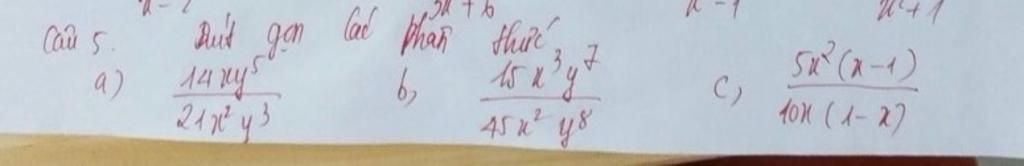 3x + 6 x - 1 x² + 1
Câu 5. Rút gọn các phân thức
a) 14xy⁵ / 21x²y³ b, 15x³y⁷ / 45x²y⁸ c, 5x²(x-1) / 10x(1-x)